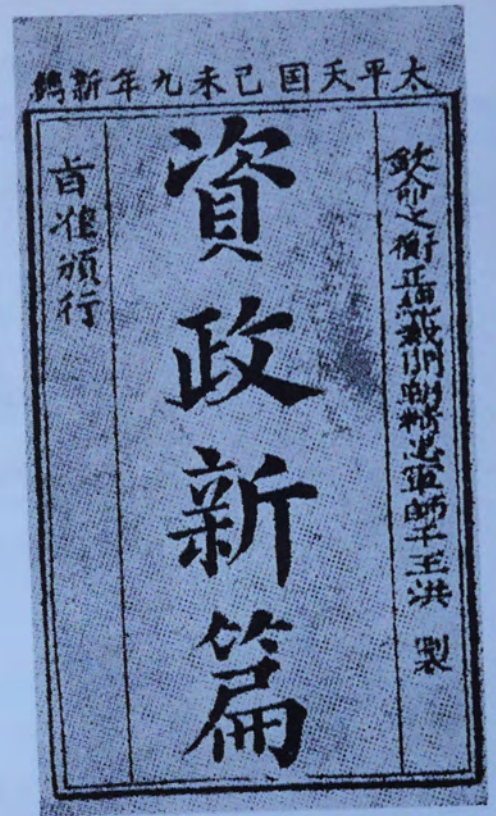 太平天国己未九年新鐫
欽命文衡正總裁開朝精忠軍師干王洪 製
資政新篇
旨准頒行